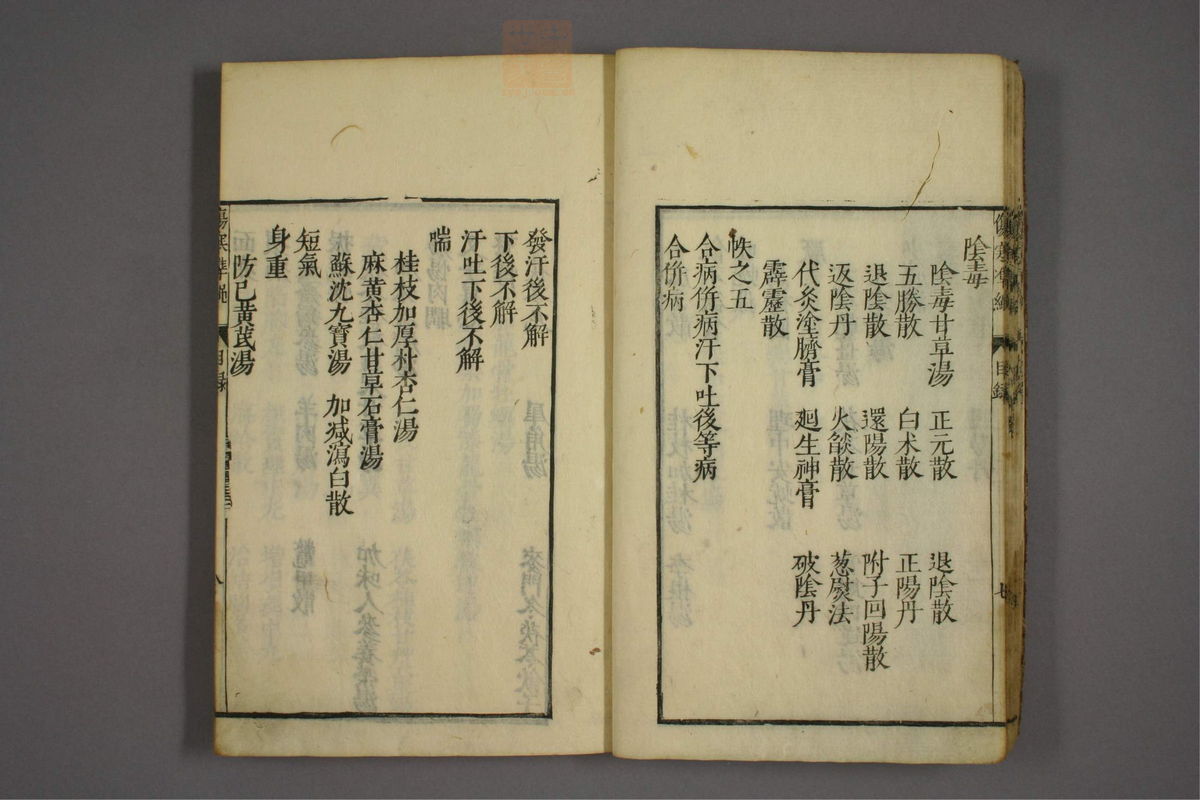 陰毒
陰毒甘草湯 正元散 退陰散
五勝散 白术散 正陽丹
退陰散 還陽散 附子回陽散
返陰丹 火燄散 葱熨法
代灸塗臍膏 廻生神膏 破陰丹
霹靂散
帙之五
合病併病汗下吐後等病
合併病
目録
七
發汗後不解
下後不解
汗吐下後不解
喘
桂枝加厚朴杏仁湯
麻黄杏仁甘草石膏湯
蘇沈九寶湯 加减瀉白散
短氣
身重
防己黄芪湯
傷寒準繩
目録
八